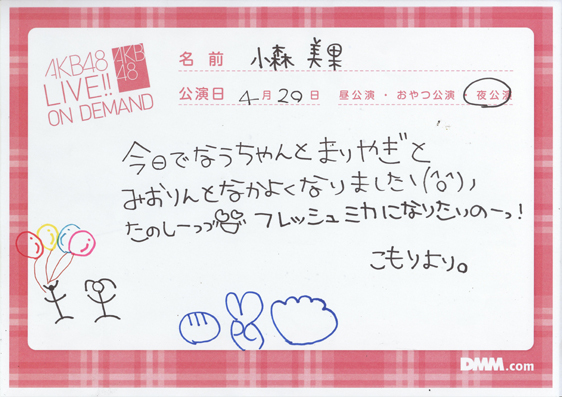 AKB48
LIVE!!
ON DEMAND
AKB
48
名前 小森 美果
公演日 4月29日 昼公演・おやつ公演・夜公演
今日でなうちゃんとまりやぎと
みおりんとなかよくなりました\(^o^)ノ
たのしーっづ フレッシュミカになりたいのーっ!
こもりより。
DMM.com